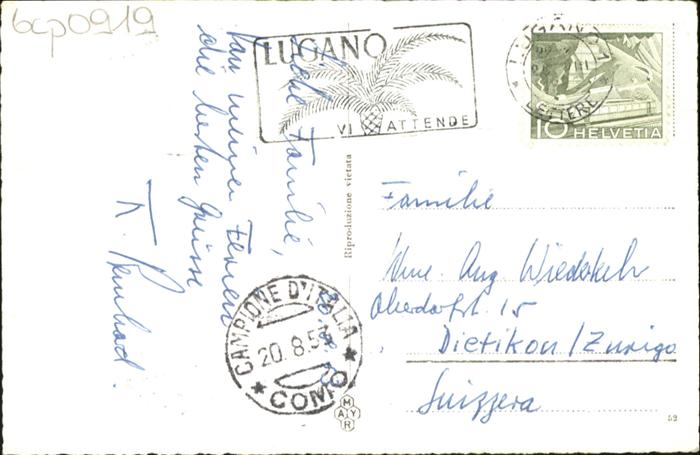 bcp0919
LUGANO
VI ATTENDE
LUGANO
LETTERE
10 HELVETIA
Liebe Familie,
Von meinen Ferien
die besten Grüsse
CAMPIONE D'ITALIA
20.8.53
COMO
Riproduzione vietata
MAYR
Familie
Aug. Wiederkehr
Oberdorfstr. 15
Dietikon / Zurigo
Suizzera